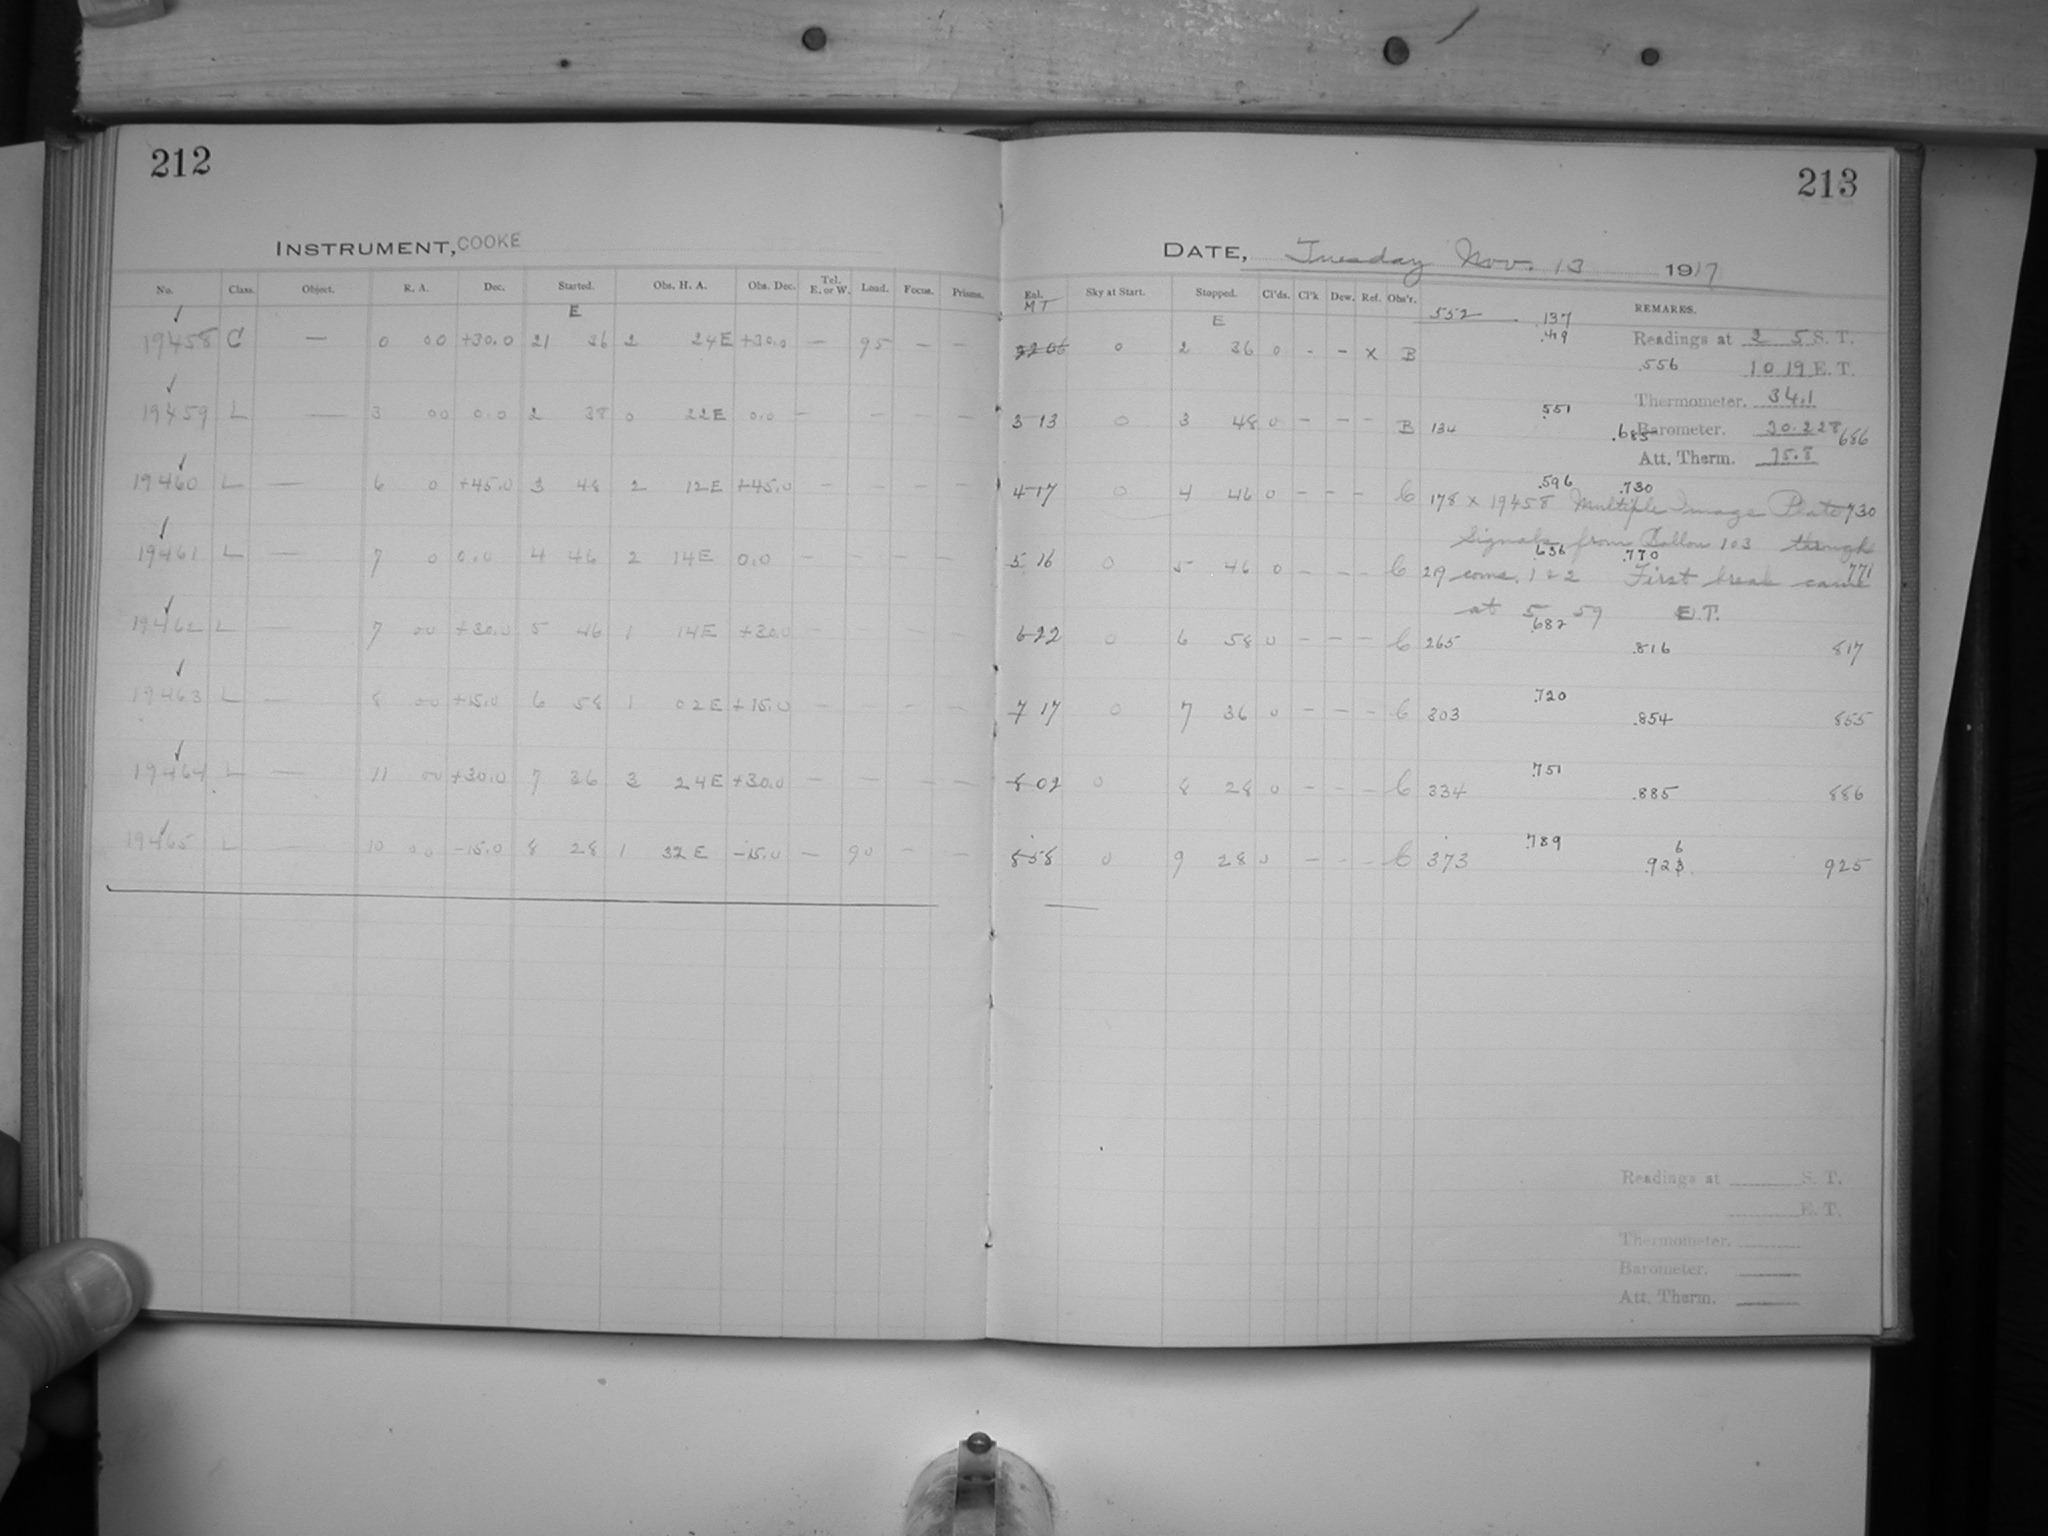 212
213
INSTRUMENT, COOKE
DATE, Tuesday Nov. 13 1917
No. Class. Object. R. A. Dec. Started. Obs. H. A. Obs. Dec. Tel. E. or W. Load. Focus. Prisms.
Sky at Start. Stopped. Cl'ds. Cl'k Dew. Ref. Obs'r. REMARKS.
E
MT E 552 .137
19458 C — 0 00 +30.0 21 36 2 24E +30.0 — 95 — —
0 2 36 0 - - x B
Readings at 2 5 S. T.
.556 10 19 E. T.
Thermometer. 34.1
19459 L — 3 00 0.0 2 38 0 22E 0.0 — — — —
3 13 0 3 48 0 — — — B 134 .551 .685 686
Barometer. 30.228
Att. Therm. 75.8
19460 L — 6 0 +45.0 3 48 2 12E +45.0 — — — —
4 17 0 4 46 0 — — — C 178 .596 .730 730
x 19458 Multiple Image Plate
Signals from Ballou 103 through
19461 L — 7 0 0.0 4 46 2 14E 0.0 — — — —
5 16 0 5 46 0 — — — C 219 .636 .770 771
coms. 1 & 2 First break came
at 5 59 E.T.
19462 L — 7 00 +30.0 5 46 1 14E +30.0 — — — —
6 22 0 6 58 0 — — — C 265 .682 .816 817
19463 L — 8 00 +15.0 6 58 1 02E +15.0 — — — —
7 17 0 7 36 0 — — — C 303 .720 .854 855
19464 L — 11 00 +30.0 7 36 3 24E +30.0 — — — —
8 02 0 8 28 0 — — — C 334 .751 .885 886
19465 L — 10 00 -15.0 8 28 1 32E -15.0 — 90 — —
8 58 0 9 28 0 — — — C 373 .789 925
Readings at S. T.
E. T.
Thermometer.
Barometer.
Att. Therm.